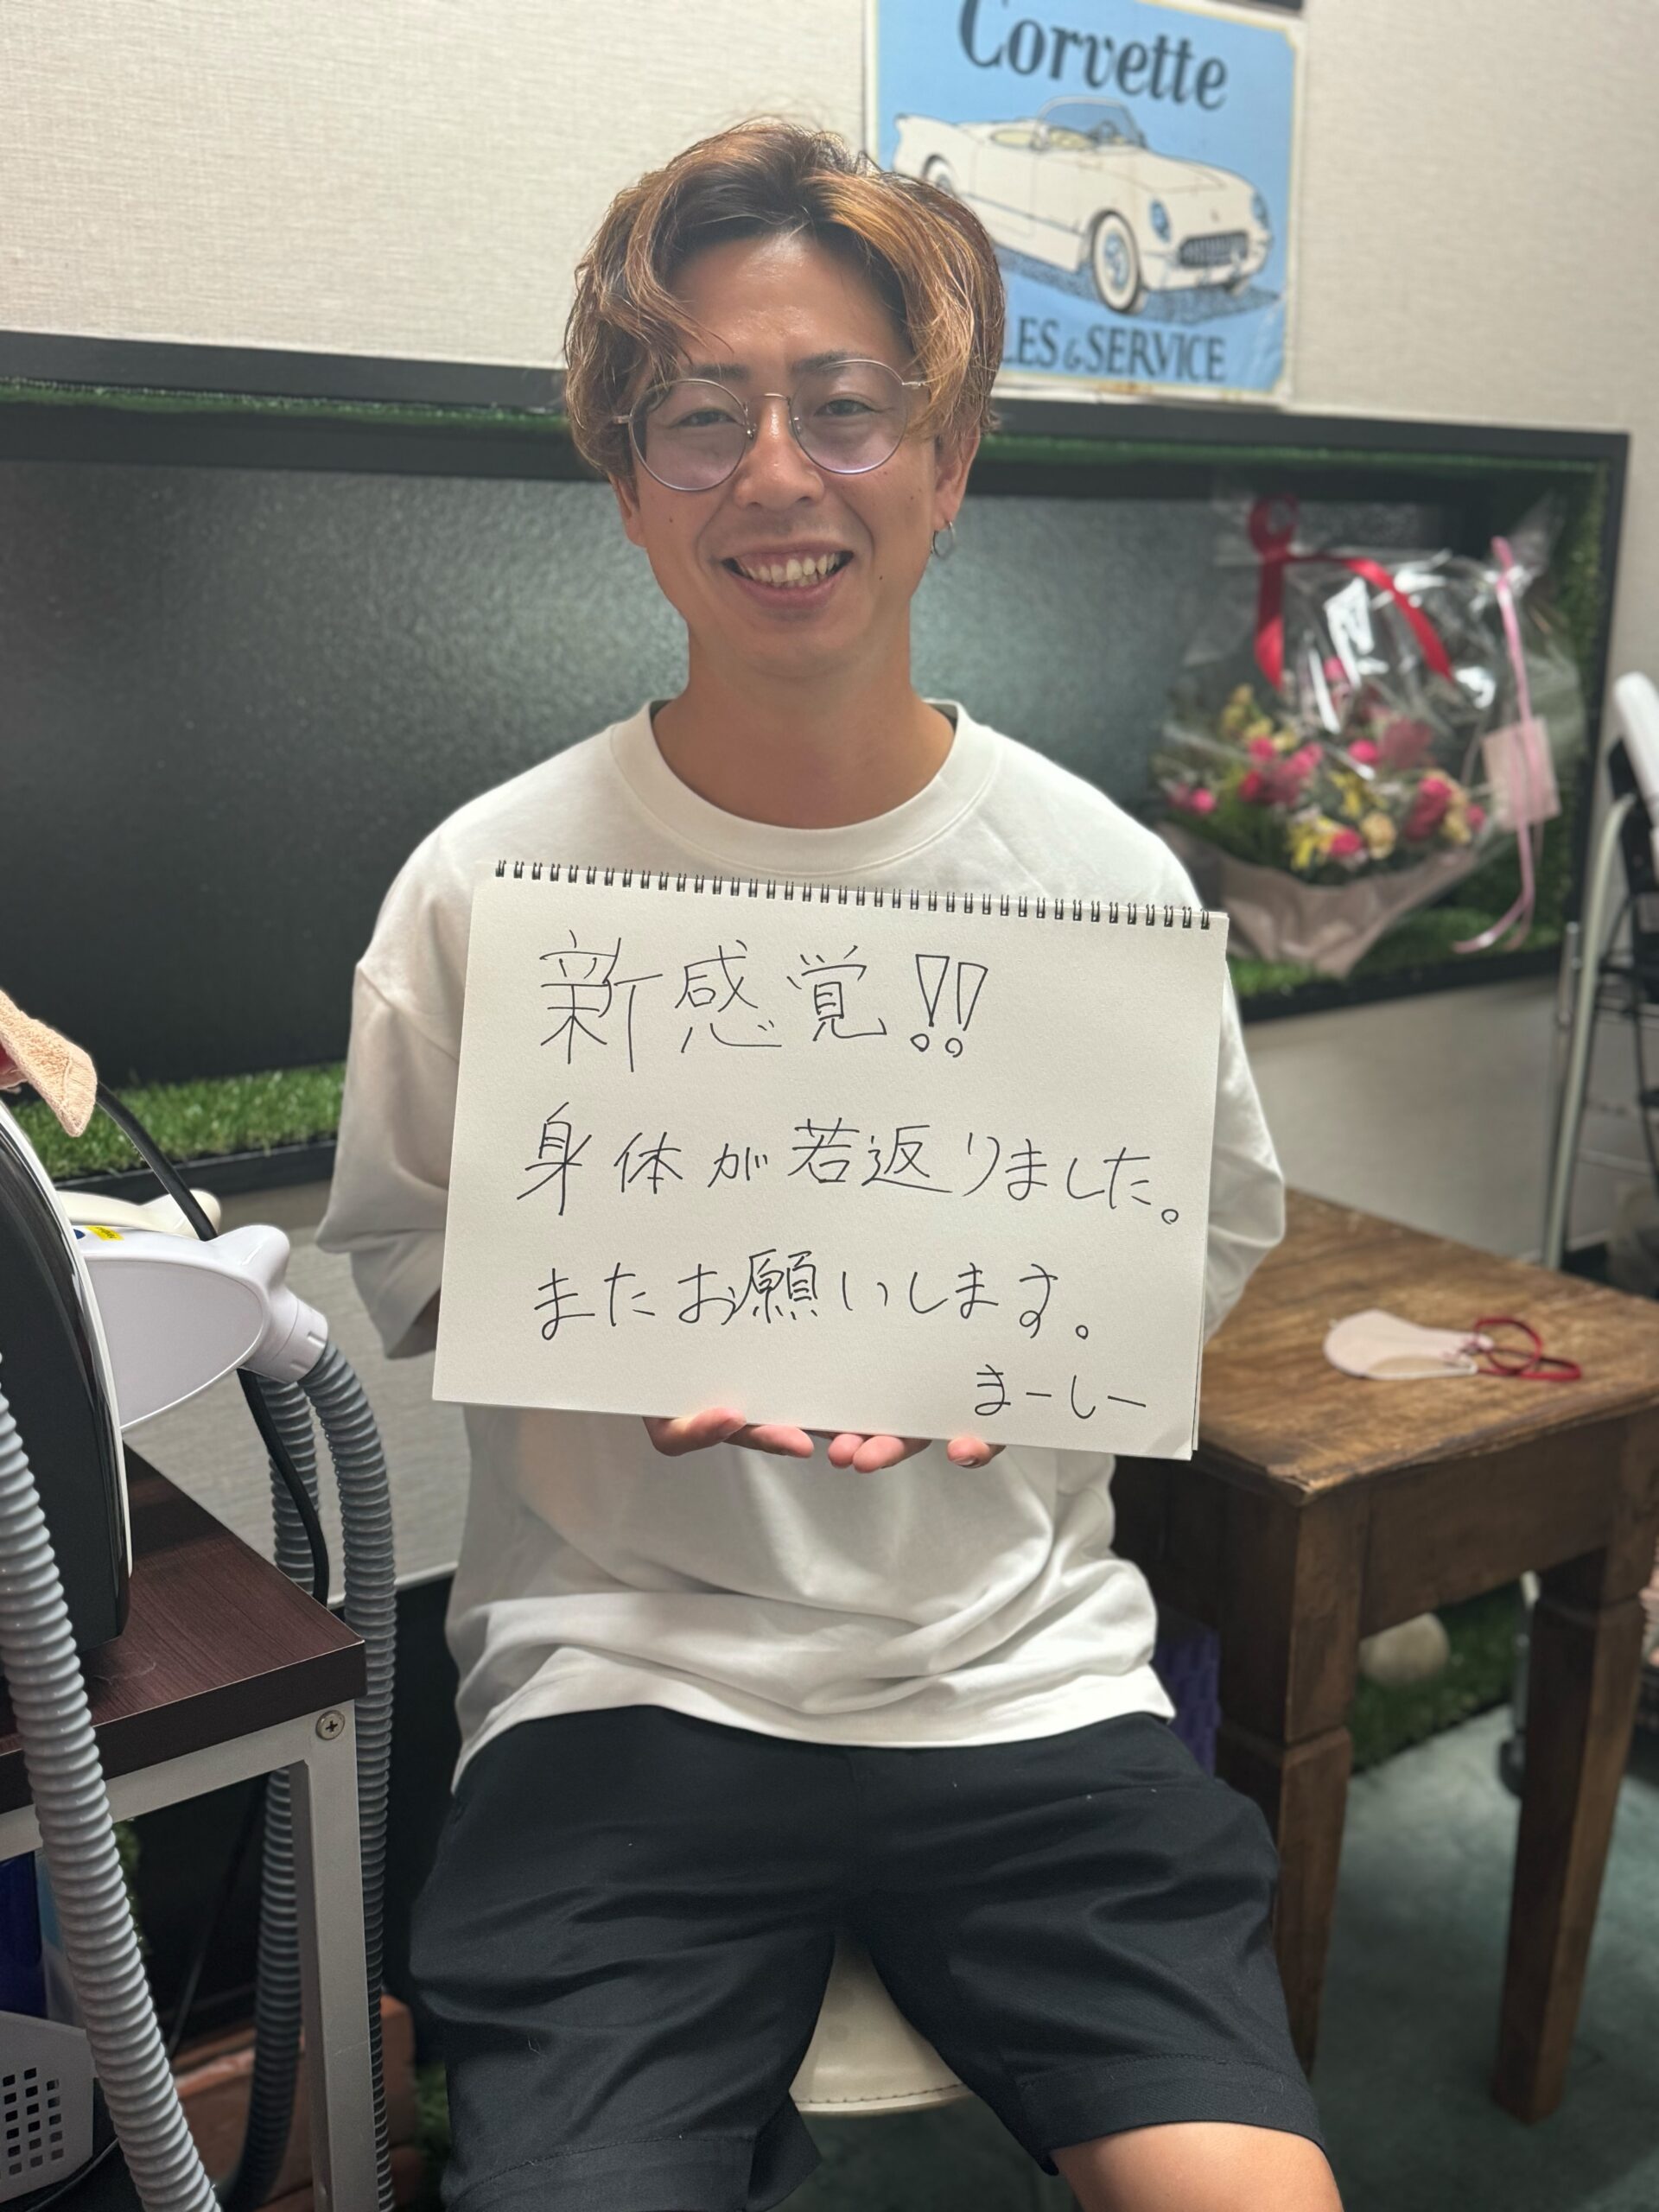 Corvette
LES & SERVICE
新感覚!!
身体が若返りました。
またお願いします。
まーしー